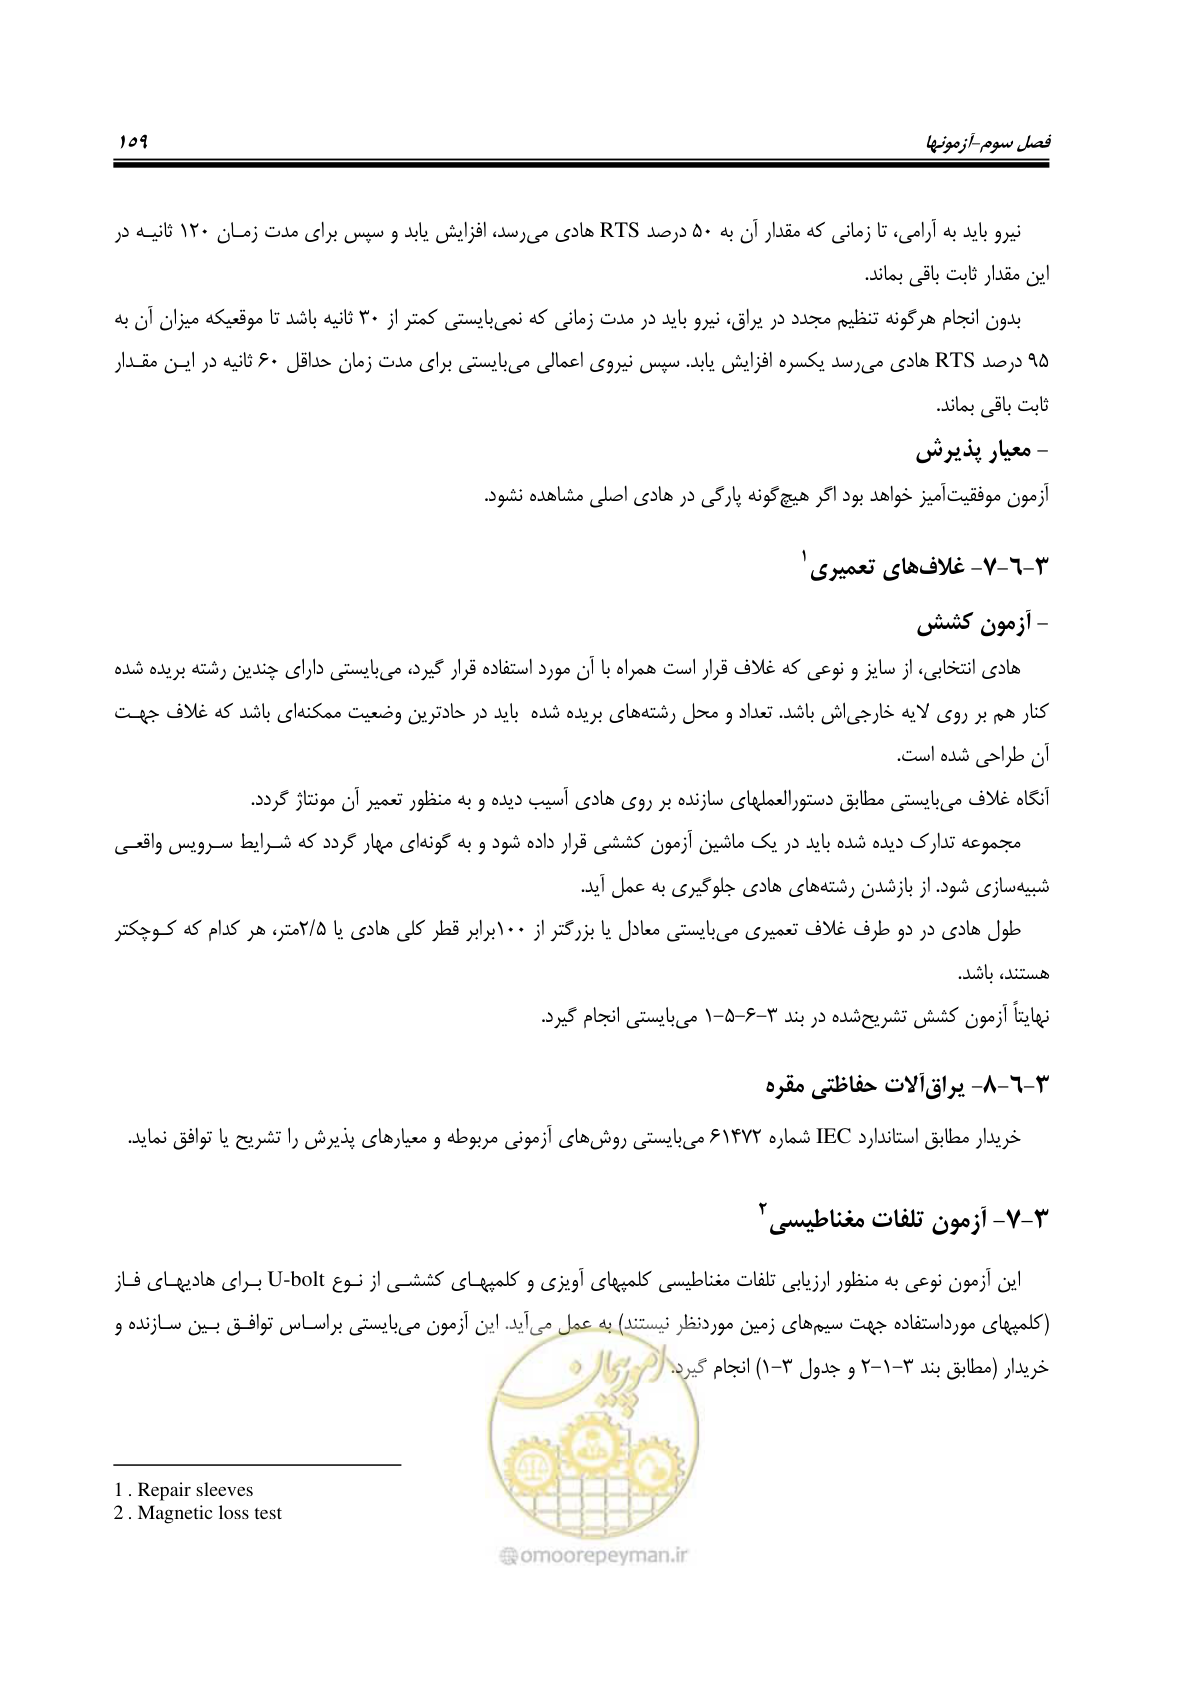 فصل سوم–آزمونها ۱۵۹
نیرو باید به آرامی، تا زمانی که مقدار آن به ۵۰ درصد RTS هادی می‌رسد، افزایش یابد و سپس برای مدت زمـان ۱۲۰ ثانیـه در
این مقدار ثابت باقی بماند.
بدون انجام هرگونه تنظیم مجدد در یراق، نیرو باید در مدت زمانی که نمی‌بایستی کمتر از ۳۰ ثانیه باشد تا موقعیکه میزان آن به
۹۵ درصد RTS هادی می‌رسد یکسره افزایش یابد. سپس نیروی اعمالی می‌بایستی برای مدت زمان حداقل ۶۰ ثانیه در ایـن مقـدار
ثابت باقی بماند.
– معیار پذیرش
آزمون موفقیت‌آمیز خواهد بود اگر هیچ‌گونه پارگی در هادی اصلی مشاهده نشود.
۳–۶–۷– غلاف‌های تعمیری۱
– آزمون کشش
هادی انتخابی، از سایز و نوعی که غلاف قرار است همراه با آن مورد استفاده قرار گیرد، می‌بایستی دارای چندین رشته بریده شده
کنار هم بر روی لایه خارجی‌اش باشد. تعداد و محل رشته‌های بریده شده باید در حادترین وضعیت ممکنه‌ای باشد که غلاف جهـت
آن طراحی شده است.
آنگاه غلاف می‌بایستی مطابق دستورالعملهای سازنده بر روی هادی آسیب دیده و به منظور تعمیر آن مونتاژ گردد.
مجموعه تدارک دیده شده باید در یک ماشین آزمون کششی قرار داده شود و به گونه‌ای مهار گردد که شـرایط سـرویس واقعـی
شبیه‌سازی شود. از بازشدن رشته‌های هادی جلوگیری به عمل آید.
طول هادی در دو طرف غلاف تعمیری می‌بایستی معادل یا بزرگتر از ۱۰۰برابر قطر کلی هادی یا ۲/۵متر، هر کدام که کـوچکتر
هستند، باشد.
نهایتاً آزمون کشش تشریح‌شده در بند ۳–۶–۵–۱ می‌بایستی انجام گیرد.
۳–۶–۸– یراق‌آلات حفاظتی مقره
خریدار مطابق استاندارد IEC شماره ۶۱۴۷۲ می‌بایستی روش‌های آزمونی مربوطه و معیارهای پذیرش را تشریح یا توافق نماید.
۳–۷– آزمون تلفات مغناطیسی۲
این آزمون نوعی به منظور ارزیابی تلفات مغناطیسی کلمپهای آویزی و کلمپهـای کششـی از نـوع U-bolt بـرای هادیهـای فـاز
(کلمپهای مورداستفاده جهت سیم‌های زمین موردنظر نیستند) به عمل می‌آید. این آزمون می‌بایستی براسـاس توافـق بـین سـازنده و
خریدار (مطابق بند ۳–۱–۲ و جدول ۳–۱) انجام گیرد.
امور پیمان
1 . Repair sleeves
2 . Magnetic loss test
@omoorepeyman.ir